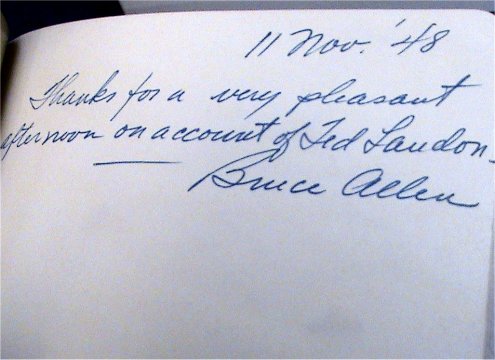 11 Nov. '48
Thanks for a very pleasant
afternoon on account of Ted Landon.
Bruce Allen